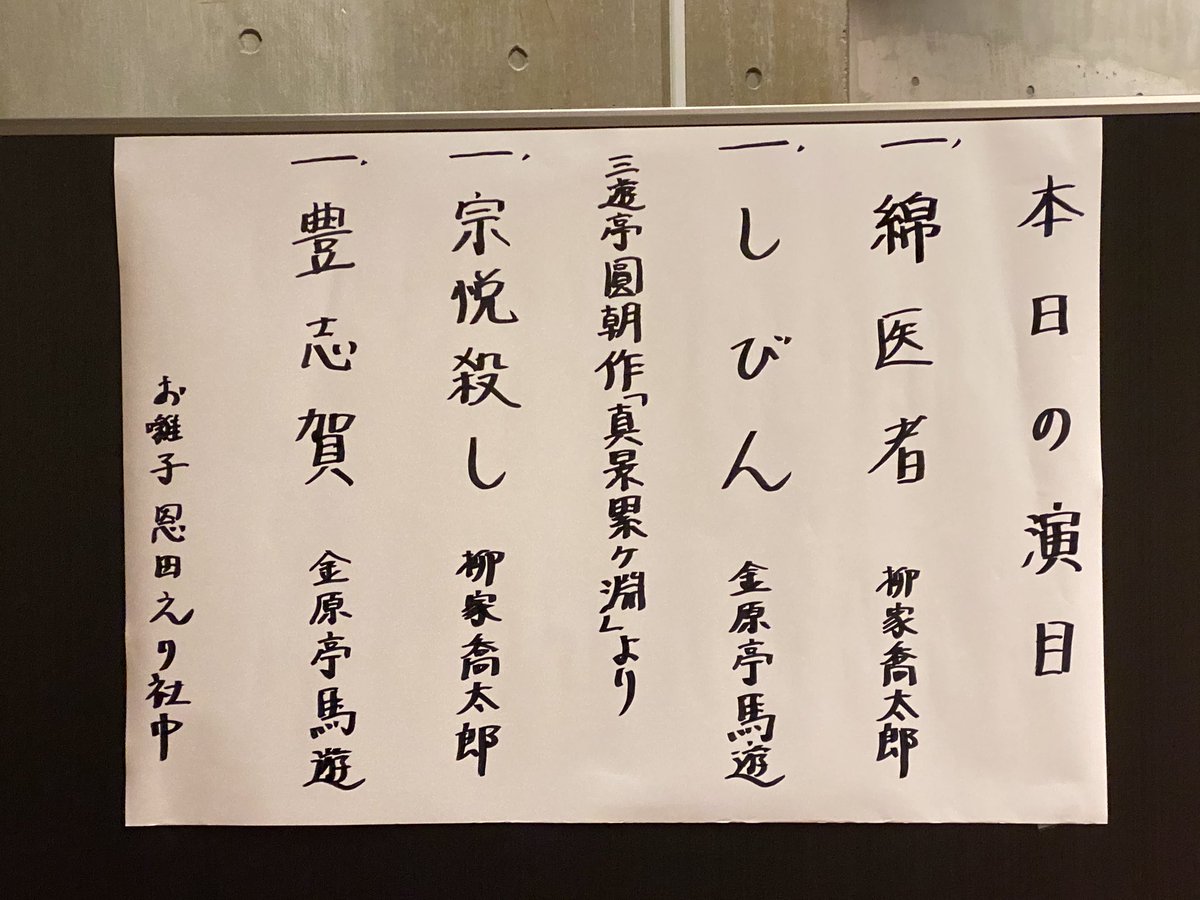 本日の演目
一、綿医者 柳家喬太郎
一、しびん 金原亭馬遊
三遊亭圓朝作「真景累ヶ淵」より
一、宗悦殺し 柳家喬太郎
一、豊志賀 金原亭馬遊
お囃子 恩田えり社中